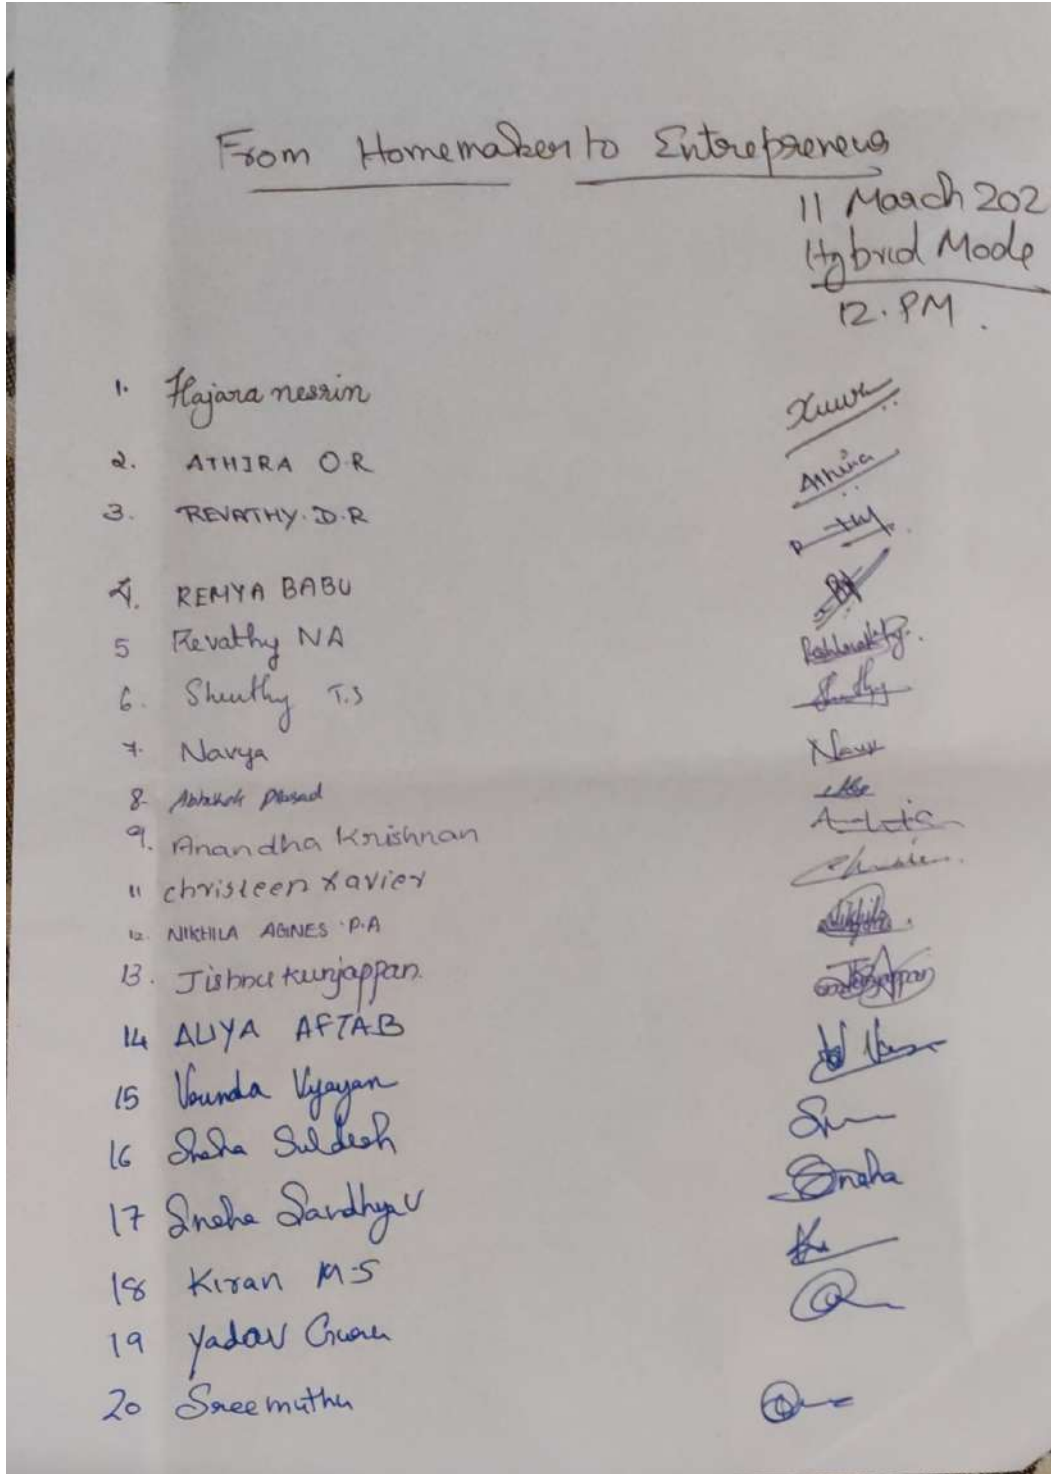 From Homemaker to Entrepreneur
11 March 202
Hybrid Mode
12. PM.
1. Hajara nesrin
2. ATHIRA O.R Athira
3. REVATHY. D.R
4. REMYA BABU
5 Revathy NA
6. Shruthy T.S Shruthy
7. Navya
8. Abhishek Prasad
9. Anandha Krishnan
11 christeen Xavier
12. NIKHILA AGNES P.A Nikhila
13. Jishnu kunjappan
14 ALIYA AFTAB
15 Vrunda Vijayan
16 Sneha
17 Sneha Sandhya V Sneha
18 Kiran M.S
19 Yadav
20 Sreemuthu